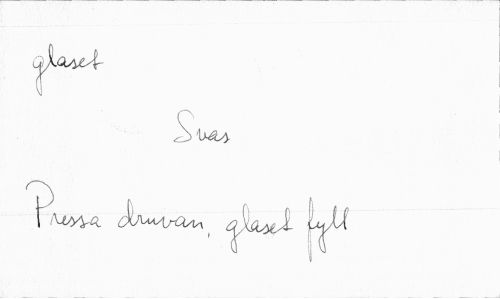 glaset
Svas
Pressa druvan, glaset fyll